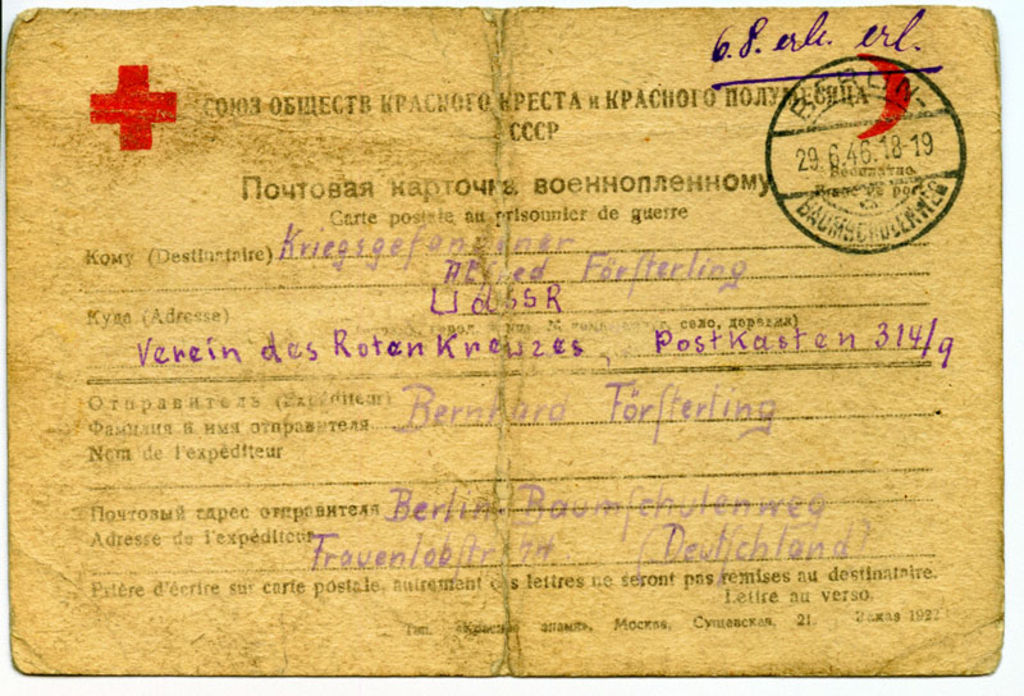 6.8. erh. erl.
СОЮЗ ОБЩЕСТВ КРАСНОГО КРЕСТА и КРАСНОГО ПОЛУМЕСЯЦА
СССР
BERLIN-
29.6.46.18-19
BAUMSCHULENWEG
Бесплатно
Franc de port
Почтовая карточка военнопленному
Carte postale au prisonnier de guerre
Кому (Destinataire) Kriegsgefangener
Alfred Förſterling
UdSSR
Куда (Adresse)
село, деревня)
Verein des Roten Kreuzes, Postkasten 314/9
Отправитель (Expéditeur) Bernhard Förſterling
Фамилия и имя отправителя
Nom de l'expéditeur
Почтовый адрес отправителя Berlin Baumſchulenweg
Adresse de l'expéditeur Frauenlobſtr (Deutſchland)
Prière d'écrire sur carte postale, autrement des lettres ne seront pas remises au destinataire.
Lettre au verso.
Тип. «Красное знамя», Москва, Сущевская, 21. Заказ 1922